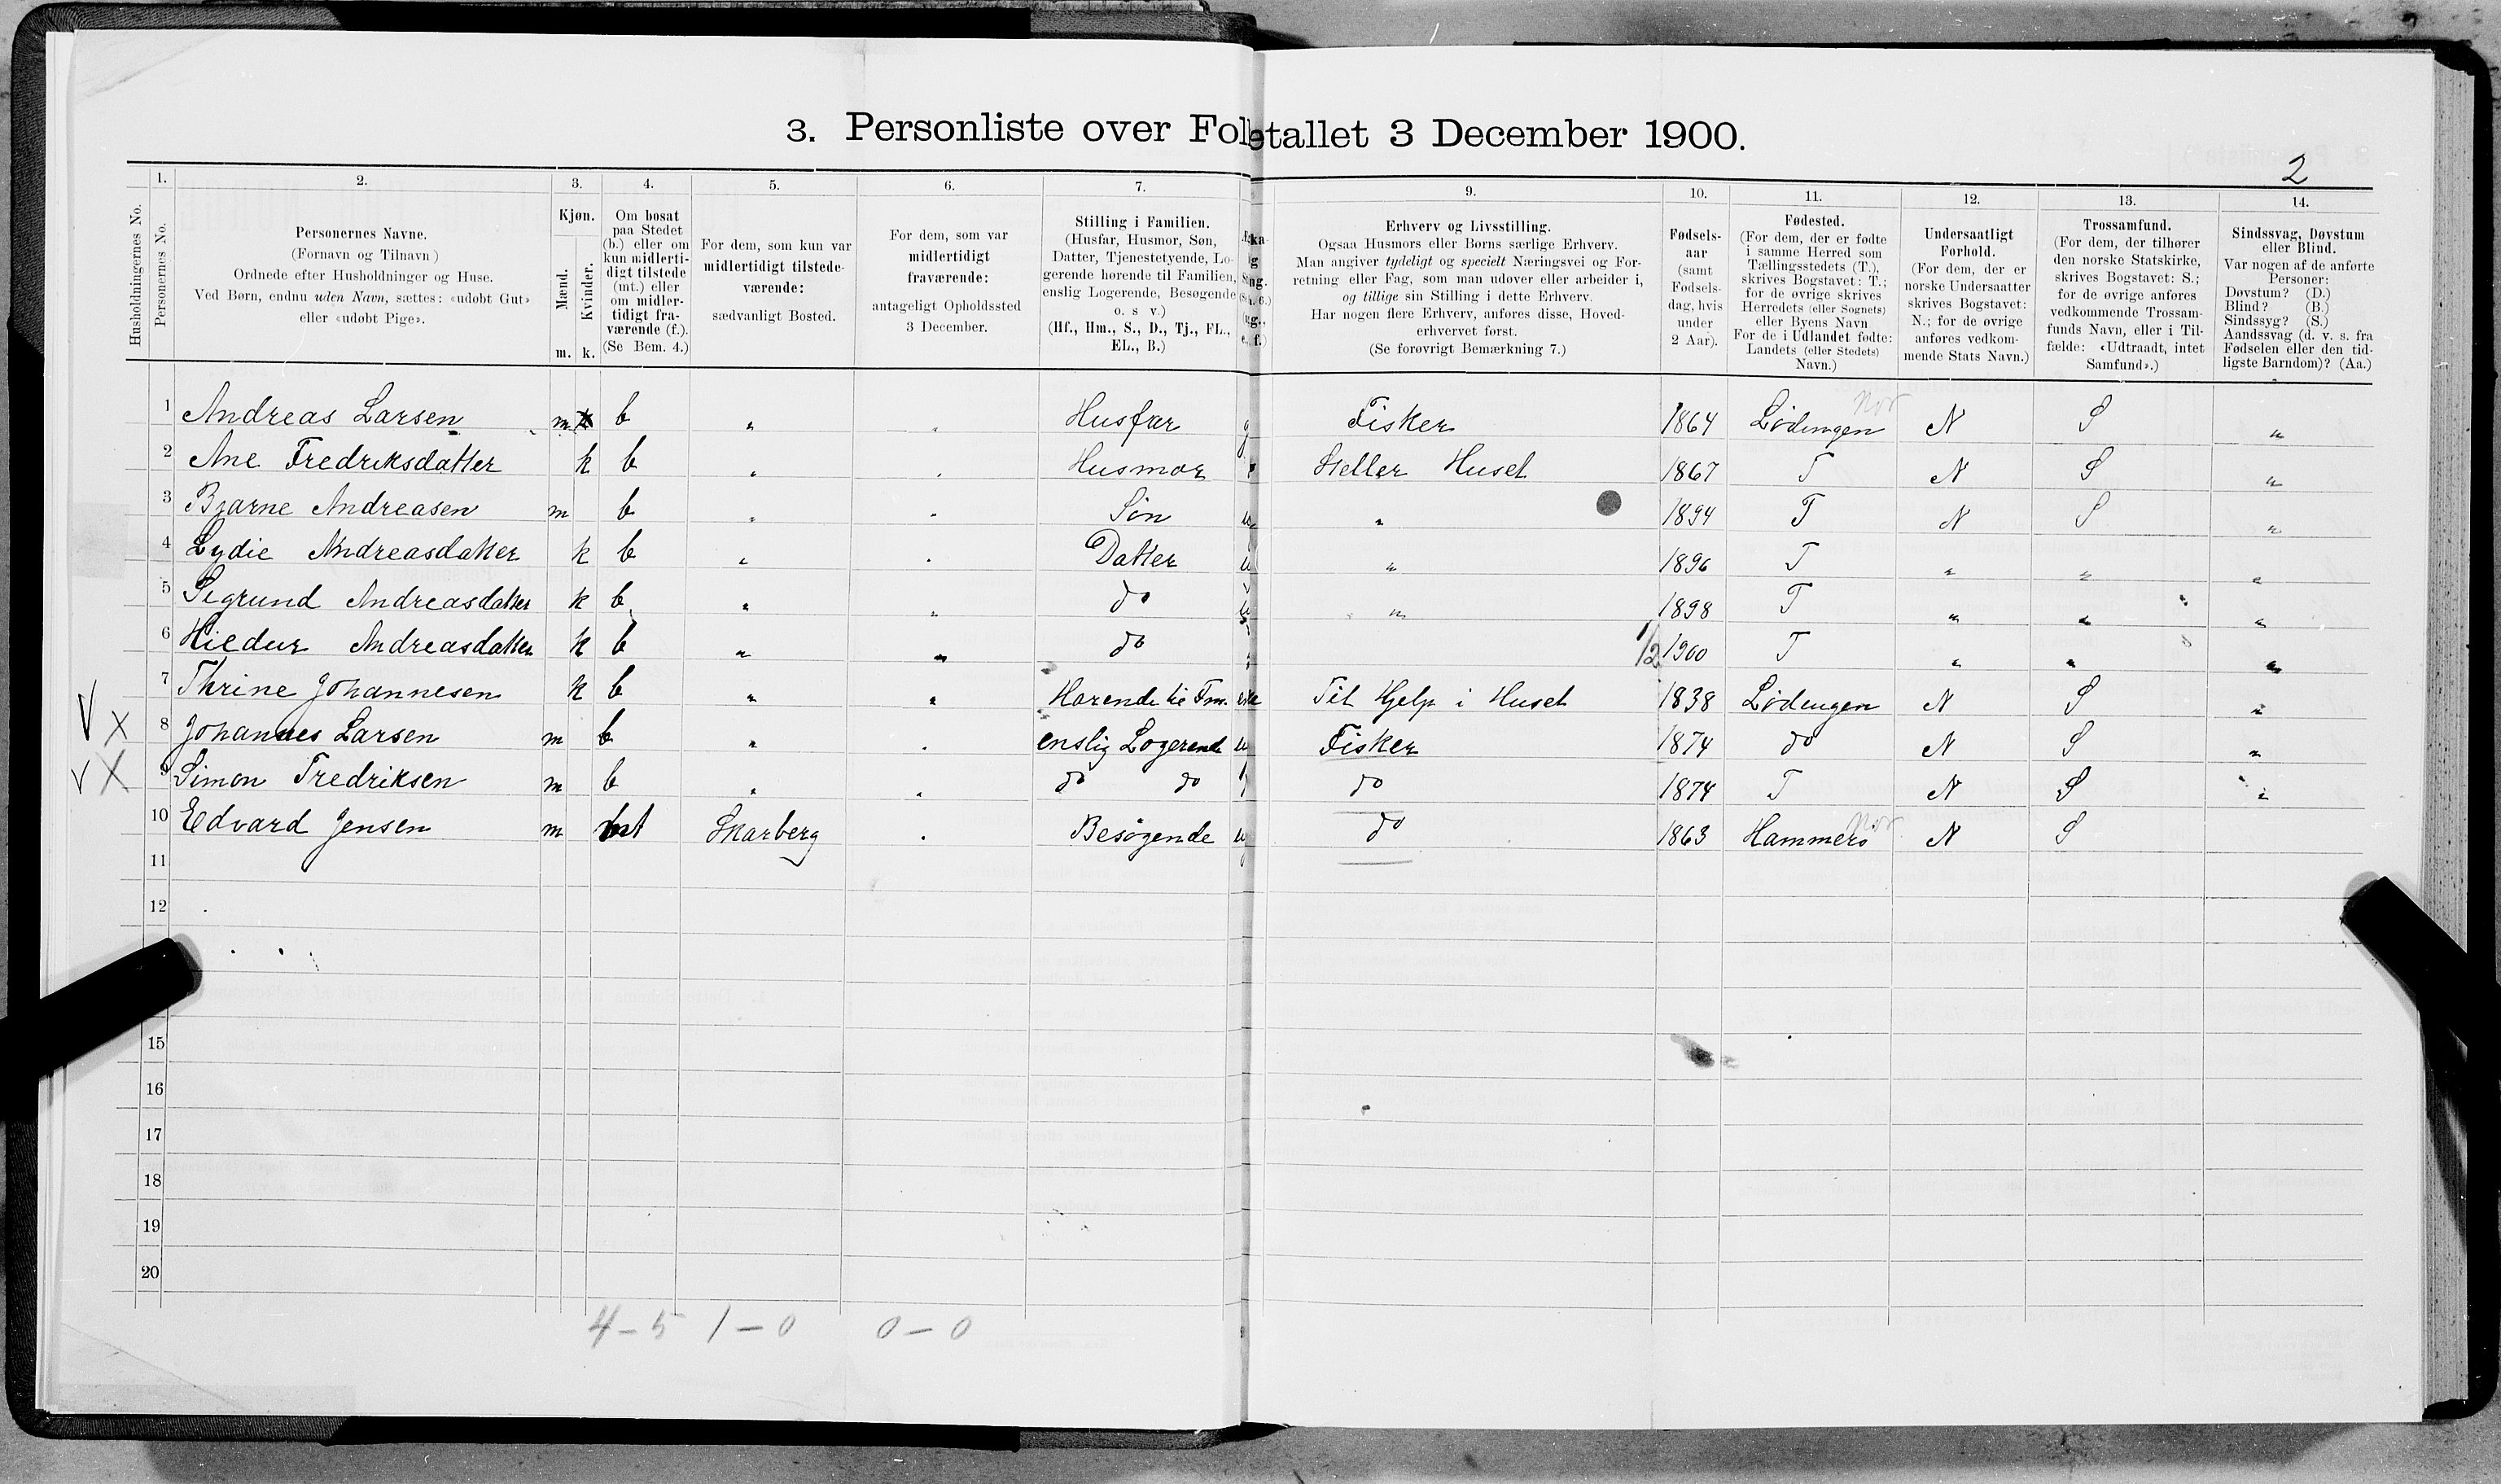 3. Personliste over Folketallet 3 December 1900.
2
1. 2. 3. 4. 5. 6. 7. 9. 10. 11. 12. 13. 14.
Husholdningernes No.
Personernes No.
Personernes Navne.
(Fornavn og Tilnavn)
Ordnede efter Husholdninger og Huse.
Ved Børn, endnu uden Navn, sættes: «udøbt Gut»
eller «udøbt Pige».
Kjøn.
Mænd.
Kvinder.
m. k.
Om bosat
paa Stedet
(b.) eller om
kun midlerti-
digt tilstede
(mt.) eller
om midler-
tidigt fra-
værende (f.).
(Se Bem. 4.)
For dem, som kun var
midlertidigt tilstede-
værende:
sædvanligt Bosted.
For dem, som var
midlertidigt
fraværende:
antageligt Opholdssted
3 December.
Stilling i Familien.
(Husfar, Husmor, Søn,
Datter, Tjenestetyende, Lo-
gerende hørende til Familien,
enslig Logerende, Besøgende
o. s v.)
(Hf., Hm., S., D., Tj., FL.,
EL., B.)
Erhverv og Livsstilling.
Ogsaa Husmors eller Børns særlige Erhverv.
Man angiver tydeligt og specielt Næringsvei og For-
retning eller Fag, som man udøver eller arbeider i,
og tillige sin Stilling i dette Erhverv.
Har nogen flere Erhverv, anføres disse, Hoved-
erhvervet først.
(Se forøvrigt Bemærkning 7.)
Fødsels-
aar
(samt
Fødsels-
dag, hvis
under
2 Aar).
Fødested.
(For dem, der er fødte
i samme Herred som
Tællingsstedets (T.),
skrives Bogstavet: T.;
for de øvrige skrives
Herredets (eller Sognets)
eller Byens Navn
For de i Udlandet fødte:
Landets (eller Stedets)
Navn.)
Undersaatligt
Forhold.
(For dem, der er
norske Undersaatter
skrives Bogstavet:
N.; for de øvrige
anføres vedkom-
mende Stats Navn.)
Trossamfund.
(For dem, der tilhører
den norske Statskirke,
skrives Bogstavet: S.;
for de øvrige anføres
vedkommende Trossam-
funds Navn, eller i Til-
fælde: «Udtraadt, intet
Samfund».)
Sindssvag, Døvstum
eller Blind.
Var nogen af de anførte
Personer:
Døvstum? (D.)
Blind? (B.)
Sindssyg? (S.)
Aandssvag (d. v. s. fra
Fødselen eller den tid-
ligste Barndom)? (Aa.)
1 Andreas Larsen m b „ „ Husfar g Fisker 1864 Lødingen Nor N S „
2 Ane Fredriksdatter k b „ „ Husmor Steller Huset 1867 T N S „
3 Bjarne Andreasen m b „ „ Søn u „ 1894 T N S „
4 Lydie Andreasdatter k b „ „ Datter u „ 1896 T „ „ „
5 Sigrund Andreasdatter k b „ „ do u „ 1898 T „ „ „
6 Hiedur Andreasdatter k b „ „ do 1/2 1900 T „ „ „
7 Thrine Johannesen k b „ „ Hørende til Fm. Til Hjelp i Huset 1838 Lødingen N S „
V X 8 Johannes Larsen m b „ „ enslig Logerende u Fisker 1874 do N S „
V X 9 Simon Fredriksen m b „ „ do do do 1874 T N S „
10 Edvard Jensen m mt Skarberg „ Besøgende u do 1863 Hammerö Nor N S
11
12
15
16
17
18
19
20
4–5 1–0 0–0